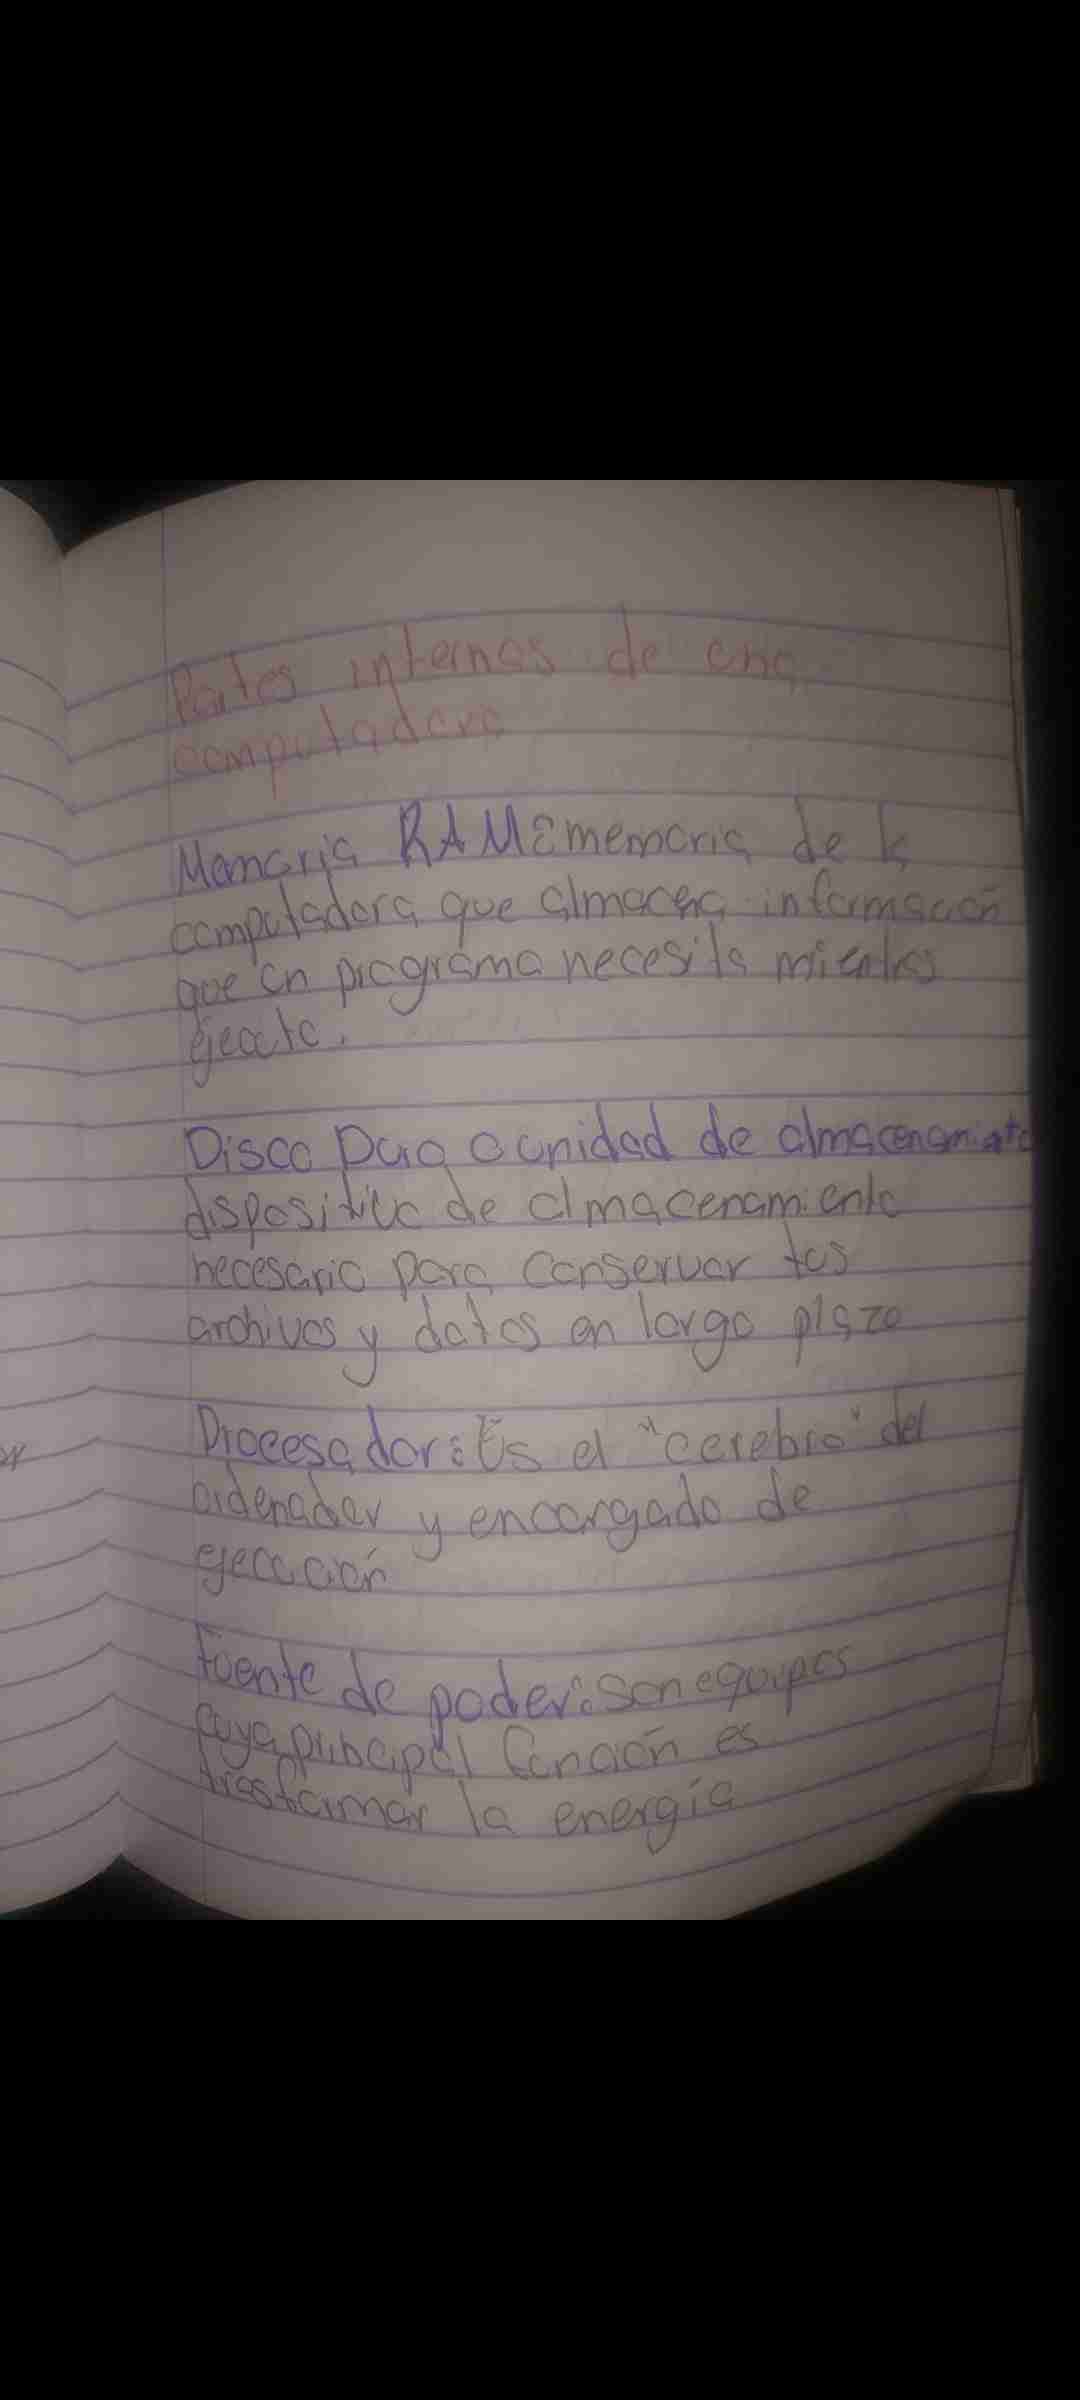 Partes internas de una
computadora
Memoria RAM: memoria de la
computadora que almacena información
que un programa necesita mientras
ejecuta.
Disco Duro o unidad de almacenamiento
dispositivo de almacenamiento
necesario para conservar tus
archivos y datos en largo plazo
Procesador: Es el "cerebro" del
ordenador y encargado de
ejecución
Fuente de poder: son equipos
cuya principal función es
trasformar la energía